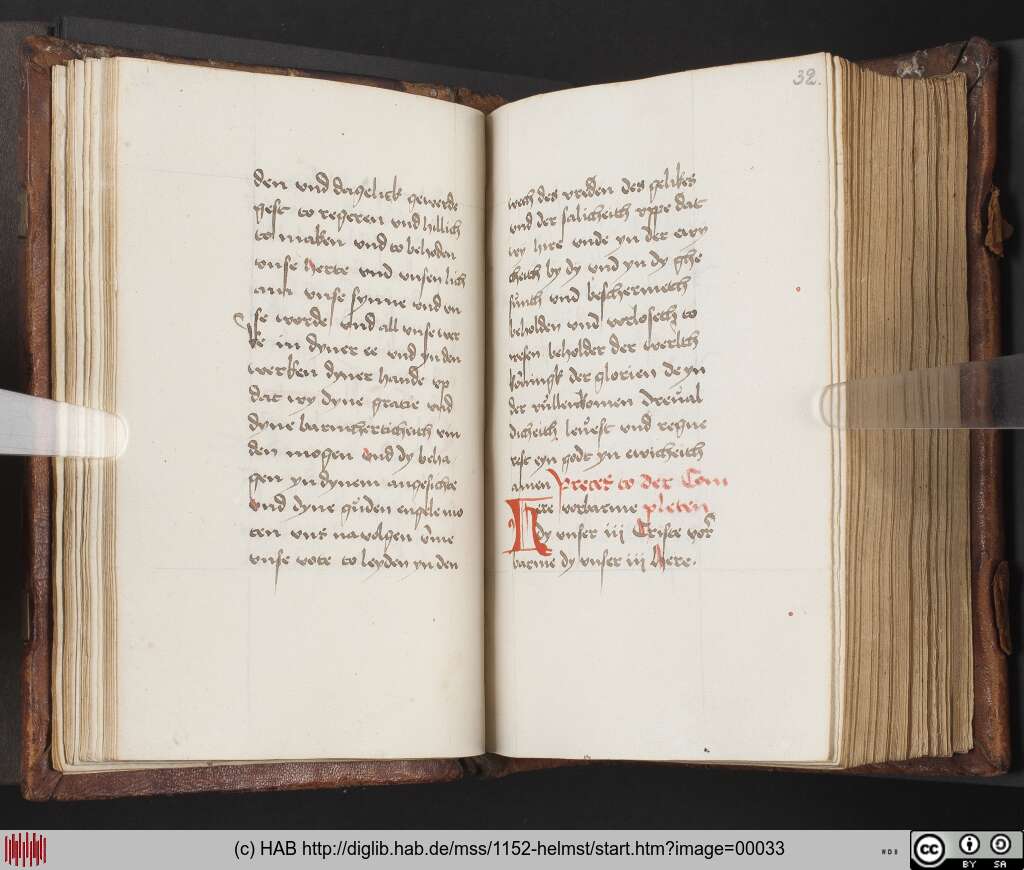 den vnd dagelick gewerde
gest to regeren vnd hillich
to maken vnd to behoden
vnse herte vnd vnsen lich
am vnse synne vnd vn
se worde vnd all vnse wer
ke in dyner ee vnd yn den
werken dyner hande vp
dat wy dyne gratie vnd
dyne barmherticheith vin
den mogen vnd dy beha
gen yn dynem angesichte
vnd dyne guden engele mo
ten vns na volgen vmme
vnse vote to leyden yn den
32.
wech des vreden des gelikes
vnd der salicheith vppe dat
wy hire vnde yn der ewy
cheith by dy vnd yn dy ghe
sunth vnd beschermeth
beholden vnd vorloseth to
wesen beholder der werlth
koningk der glorien de yn
der vullenkomen dreual
dicheith leuest vnd regne
rest eyn godt yn ewicheith
amen Preces to der Com
Here vorbarme pleten
dy vnser iij Criste vor
barme dy vnser iij Here.
(c) HAB http://diglib.hab.de/mss/1152-helmst/start.htm?image=00033
WDB
cc BY SA